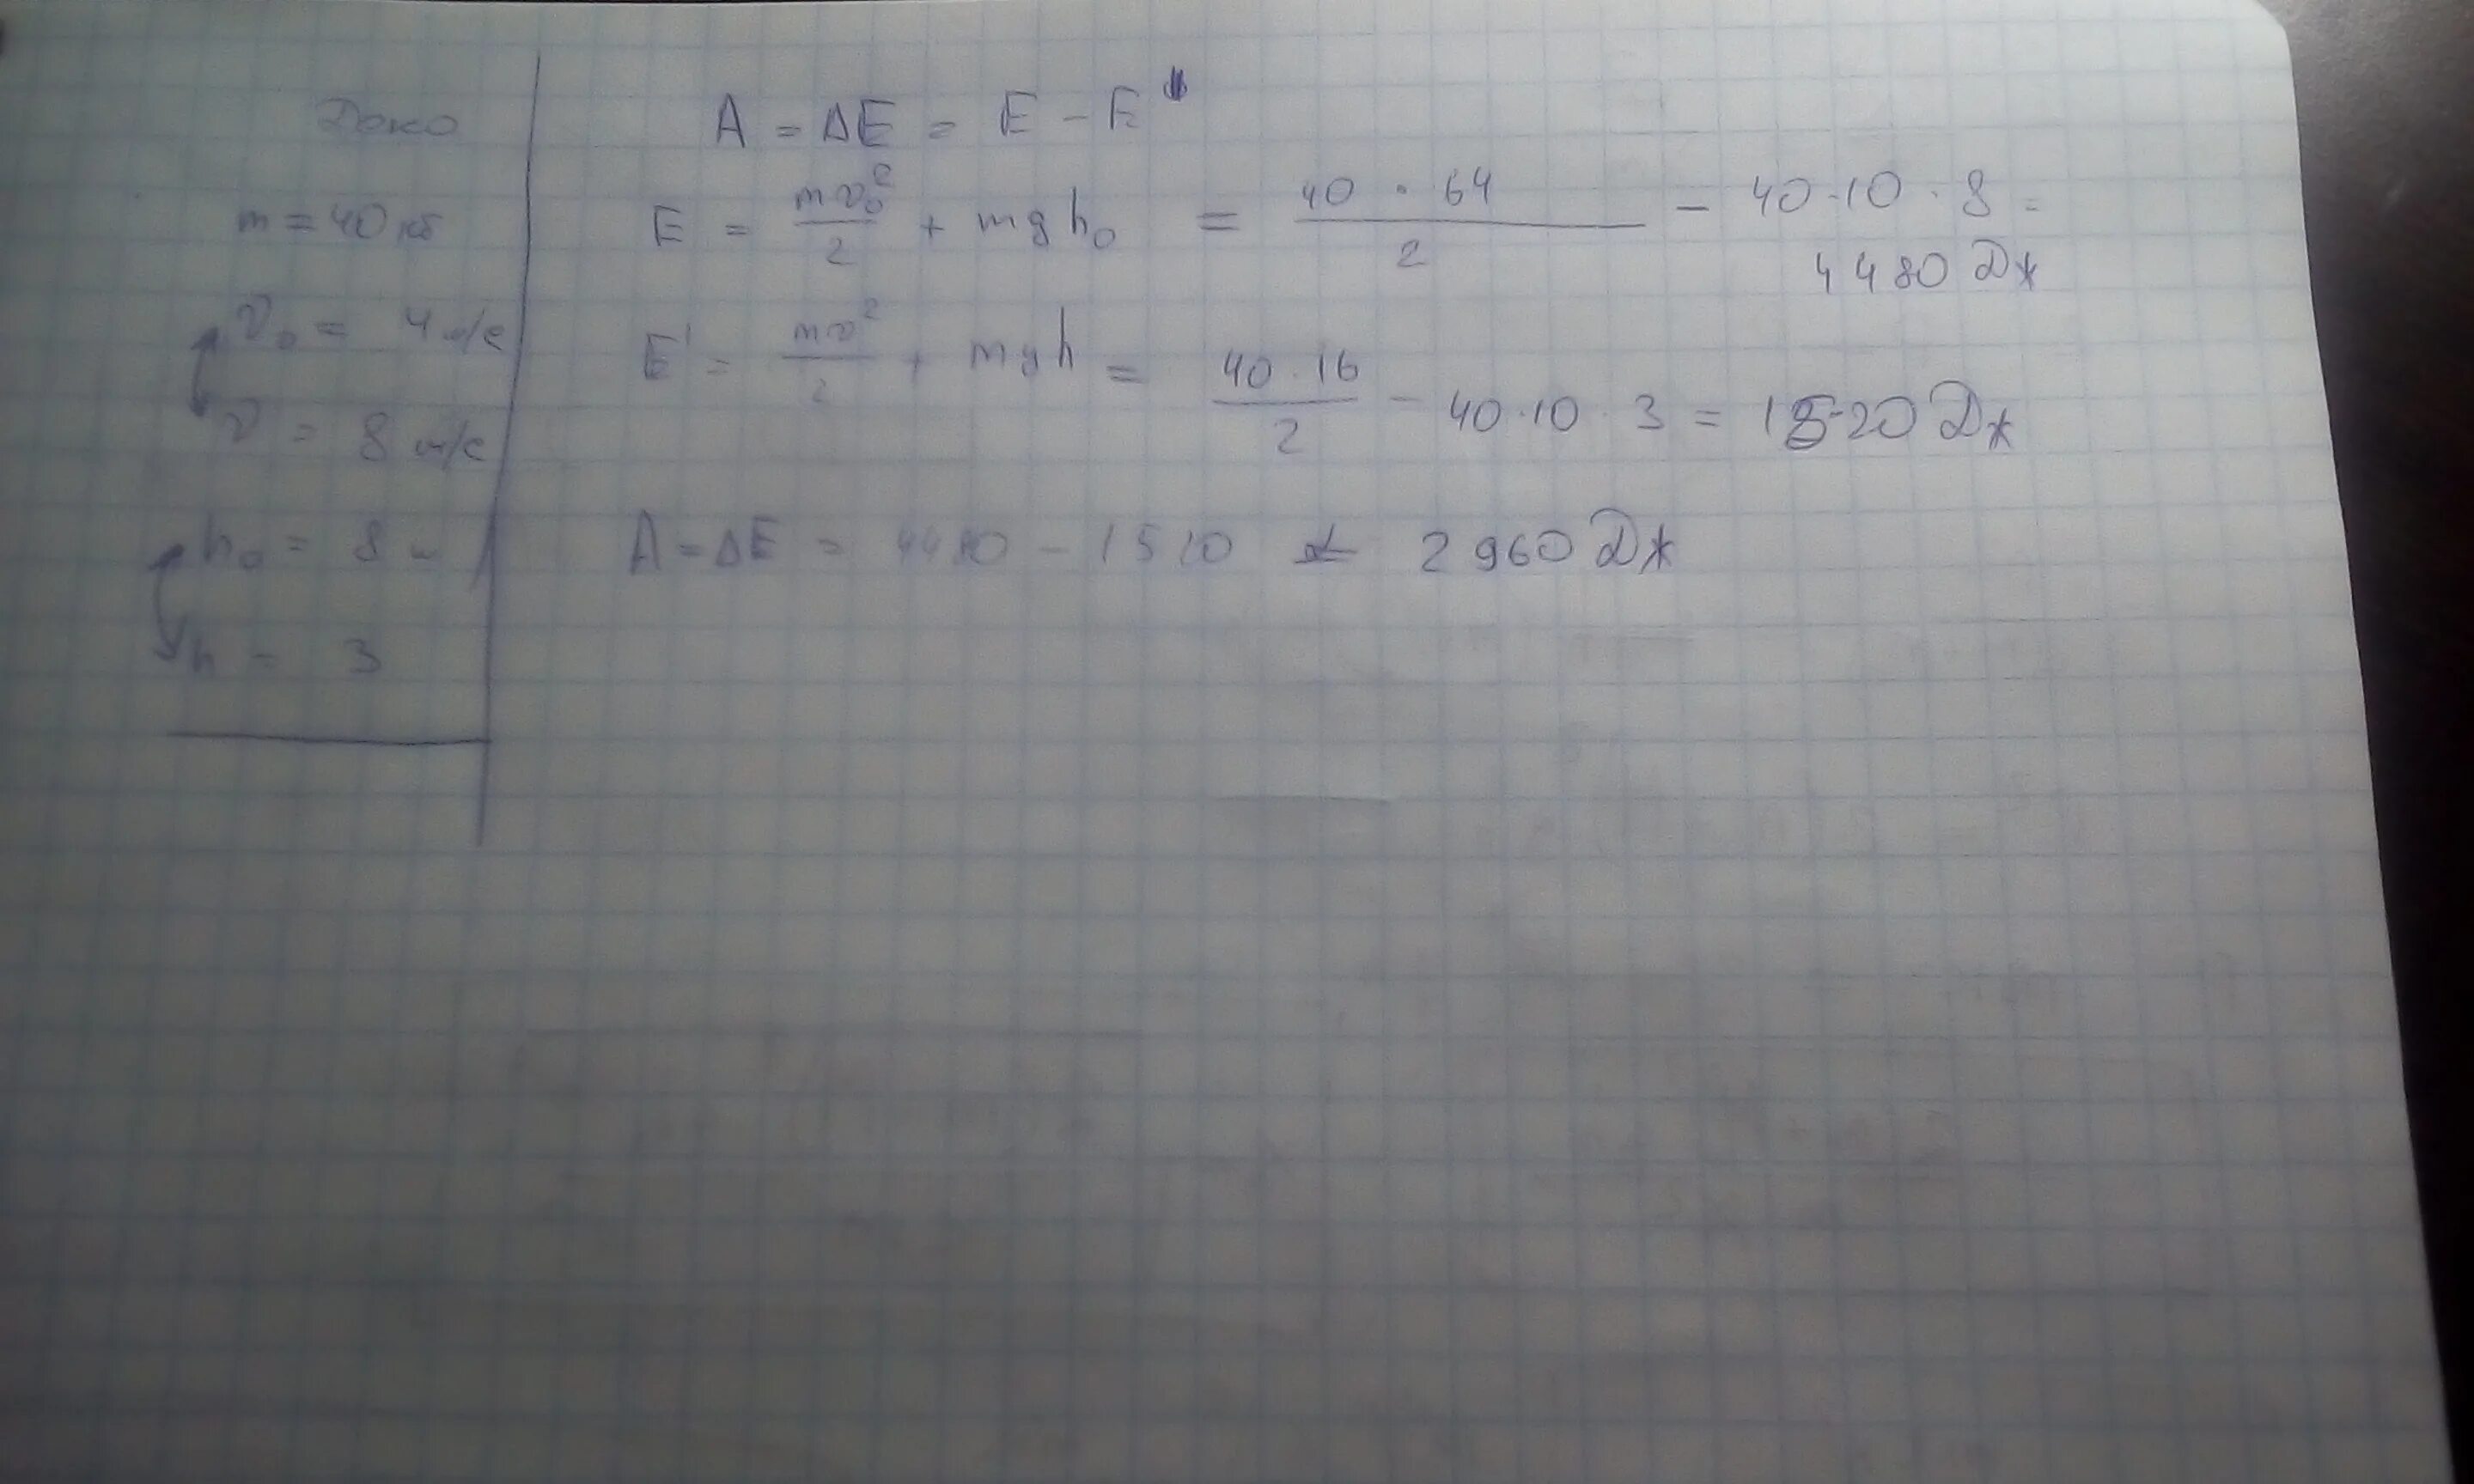 Дано
m = 40 кг
v₀ = 4 м/с
v = 8 м/с
h₀ = 8 м
h = 3
A = ΔE = E - E'
E = mv₀²/2 + mgh₀ = 40 · 64/2 - 40·10 · 8 =
4480 Дж
E' = mv²/2 + mgh = 40 · 16/2 - 40·10 · 3 = 1520 Дж
A = ΔE = 4480 - 1520 = 2960 Дж